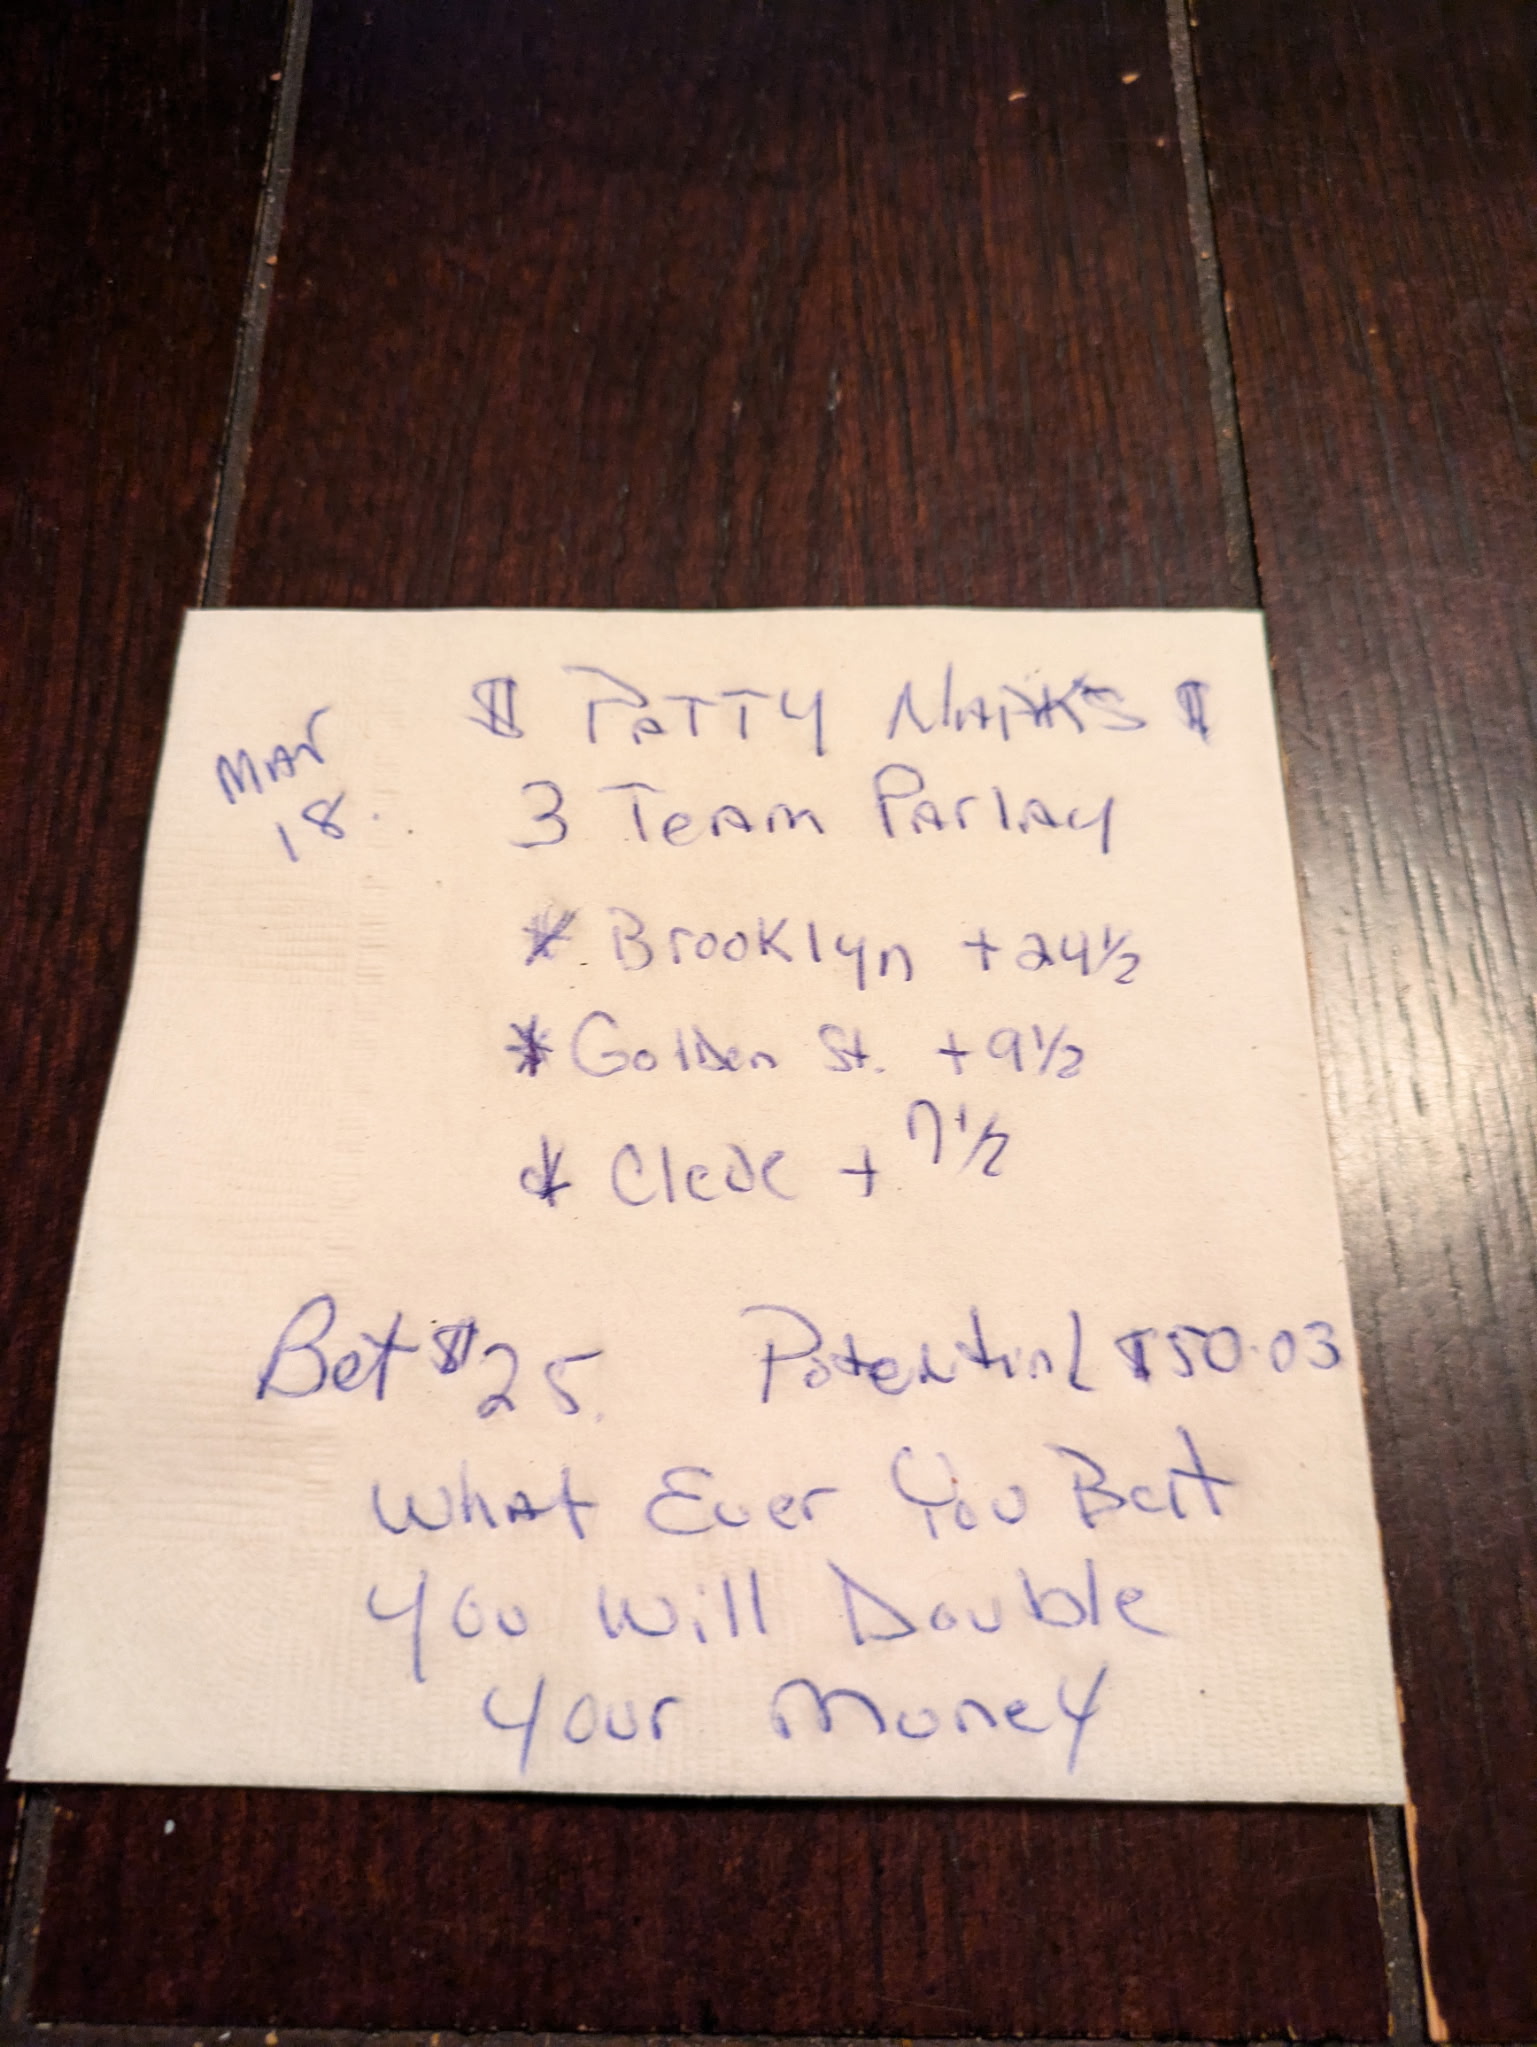 Mar
18.
$ Patty $
3 Team Parlay
* Brooklyn +24½
* Golden St. +9½
* Cleve + 7½
Bet $25. Potential $50.03
What Ever You Bet
You Will Double
Your Money